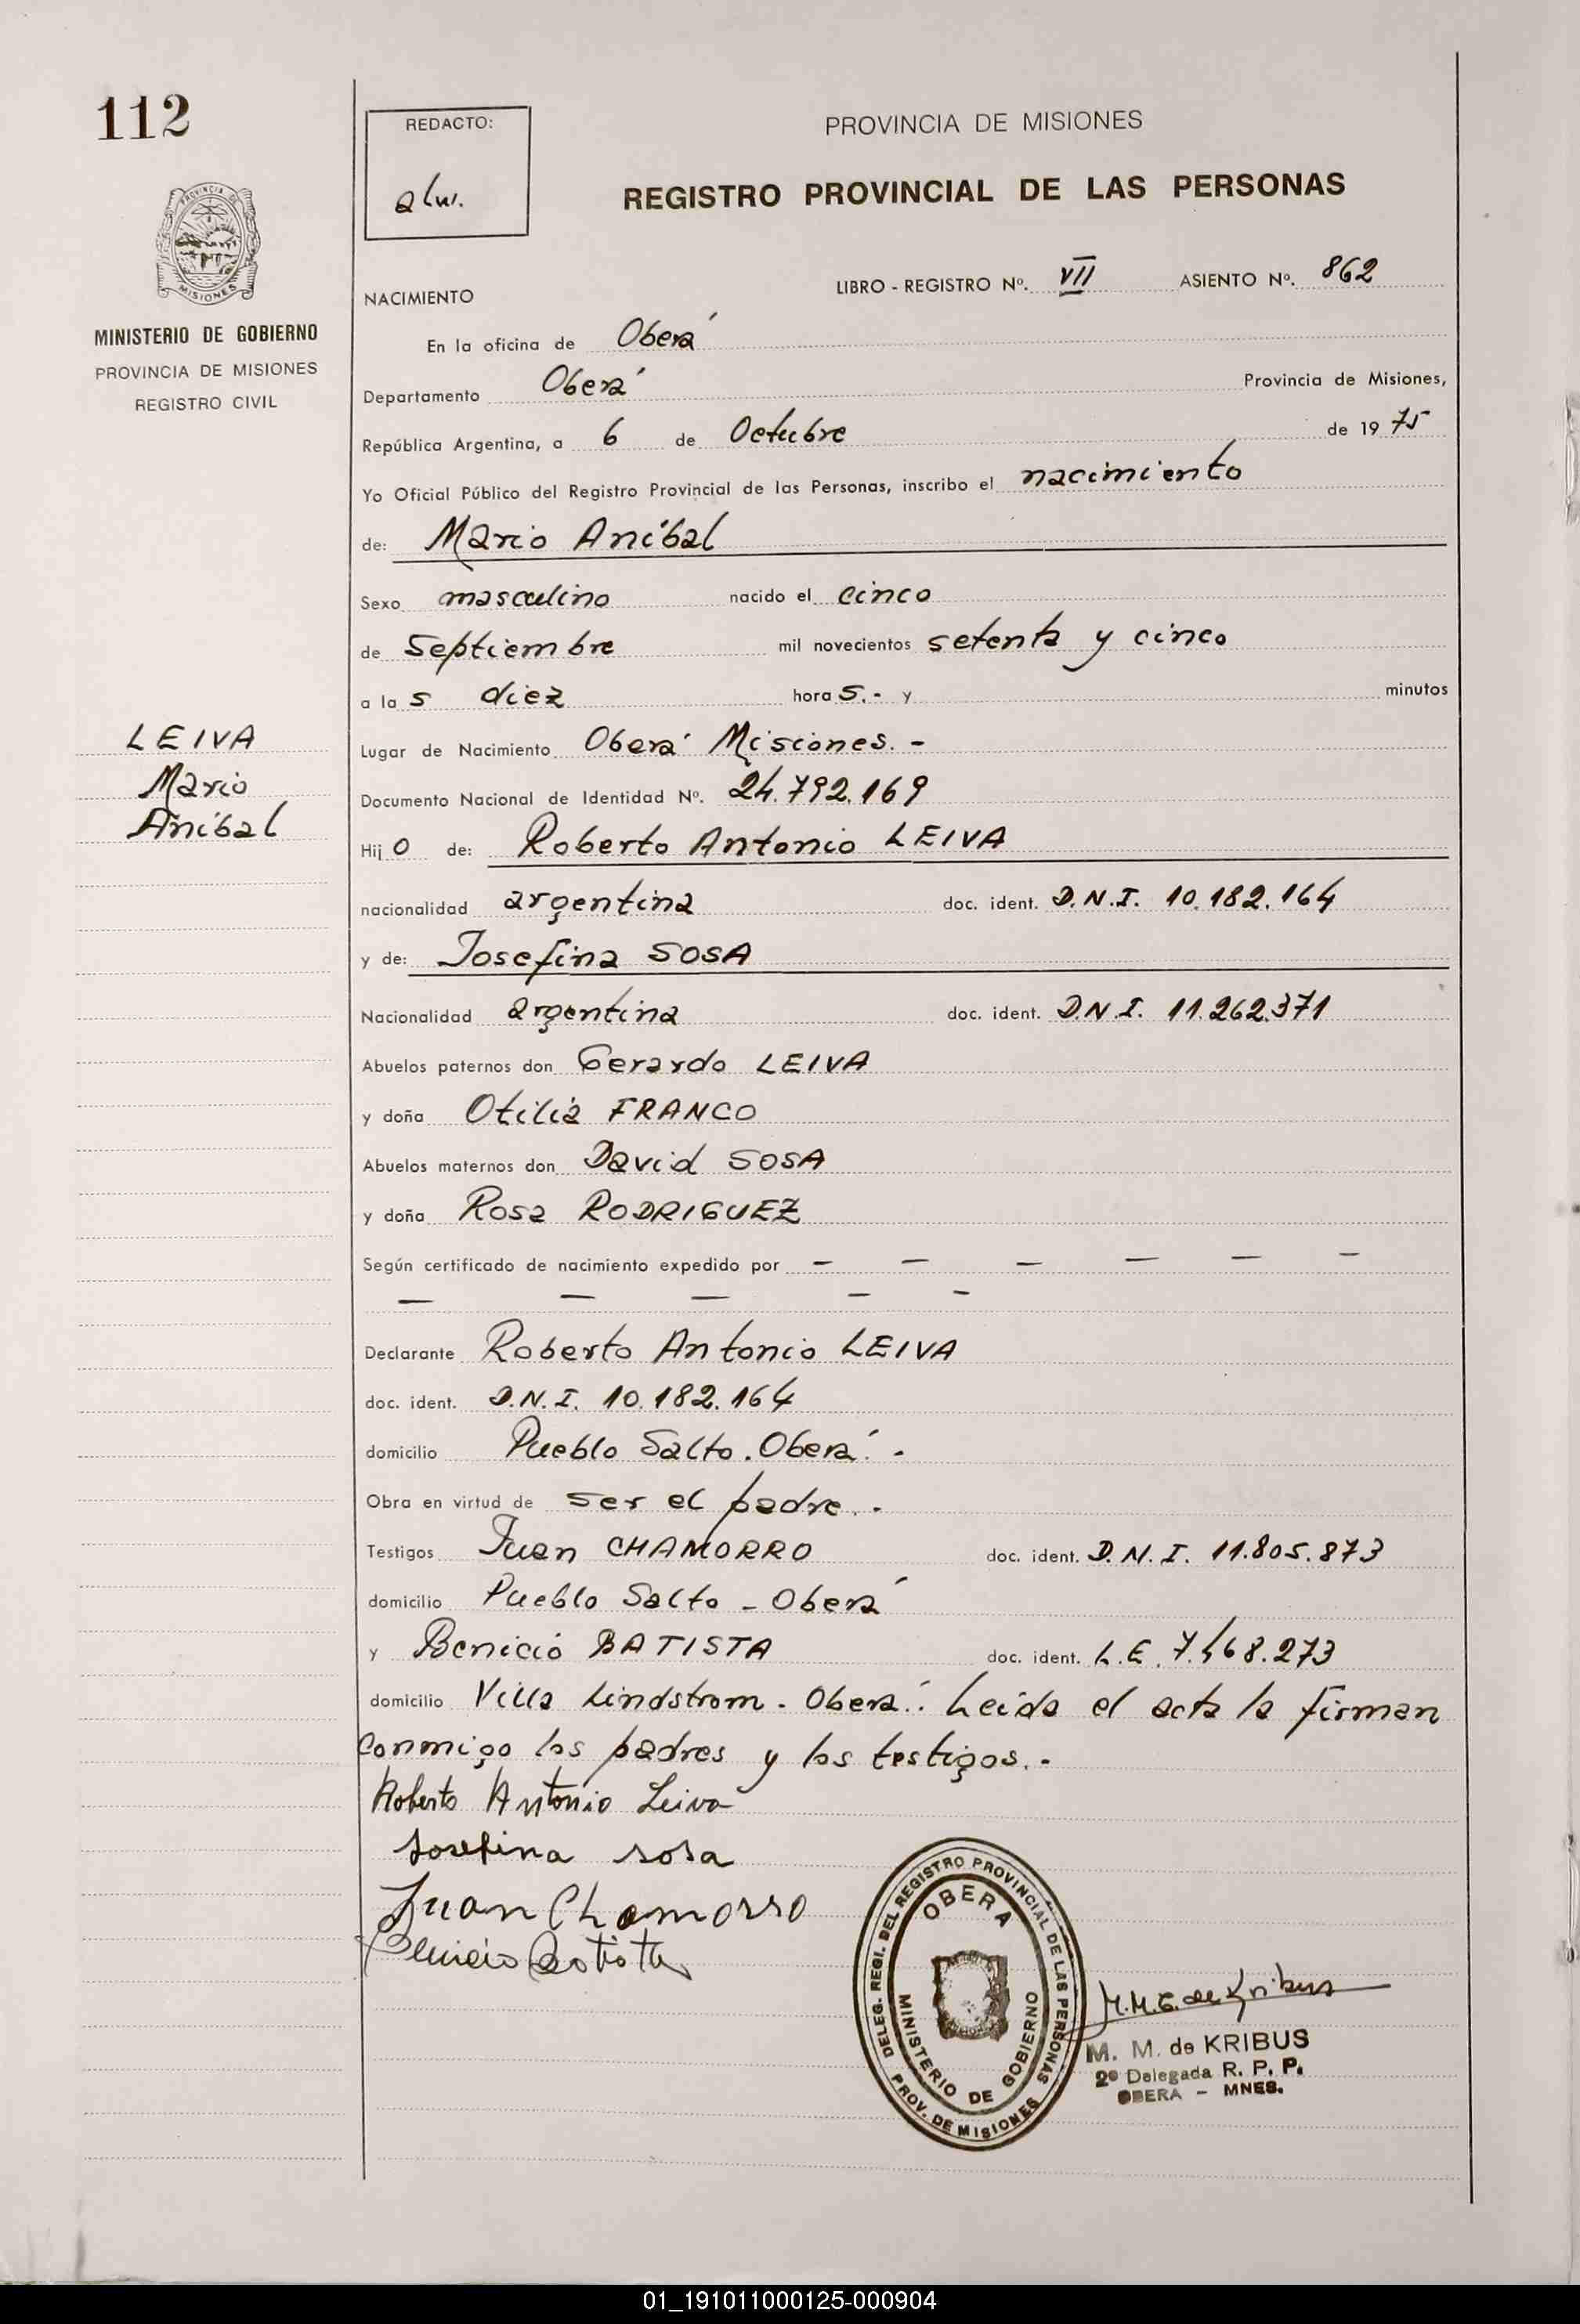 112
REDACTO:
PROVINCIA DE MISIONES
REGISTRO PROVINCIAL DE LAS PERSONAS
PROVINCIA DE
MISIONES
MINISTERIO DE GOBIERNO
PROVINCIA DE MISIONES
REGISTRO CIVIL
LIBRO - REGISTRO Nº. VII ASIENTO Nº. 862
NACIMIENTO
En la oficina de Oberá
Departamento Oberá Provincia de Misiones,
República Argentina, a 6 de Octubre de 1975
Yo Oficial Público del Registro Provincial de las Personas, inscribo el nacimiento
de: Mario Aníbal
Sexo masculino nacido el cinco
de Septiembre mil novecientos setenta y cinco
a las diez horas.- y minutos
LEIVA
Mario
Aníbal
Lugar de Nacimiento Oberá Misiones.-
Documento Nacional de Identidad Nº. 24.792.169
Hijo de: Roberto Antonio LEIVA
nacionalidad argentina doc. ident. D.N.I. 10.182.164
y de: Josefina SOSA
Nacionalidad argentina doc. ident. D.N.I. 11.262.371
Abuelos paternos don Gerardo LEIVA
y doña Otilia FRANCO
Abuelos maternos don David SOSA
y doña Rosa RODRIGUEZ
Según certificado de nacimiento expedido por - - - - - -
- - - - -
Declarante Roberto Antonio LEIVA
doc. ident. D.N.I. 10.182.164
domicilio Pueblo Salto. Oberá.-
Obra en virtud de ser el padre.-
Testigos Juan CHAMORRO doc. ident. D.N.I. 11.805.873
domicilio Pueblo Salto - Oberá
y Benicio BATISTA doc. ident. L.E.
domicilio Villa Lindstrom - Oberá.: Leída el acta la firman
conmigo los padres y los testigos.-
Roberto Antonio Leiva
Josefina sosa
Juan Chamorro
Benicio Batista
DELEG. REGI. DEL REGISTRO PROVINCIAL DE LAS PERSONAS
PROV. DE MISIONES
OBERA
MINISTERIO DE GOBIERNO
M.M.G. de Kribus
M. M. de KRIBUS
2º Delegada R. P. P.
OBERA - MNES.
01_191011000125-000904